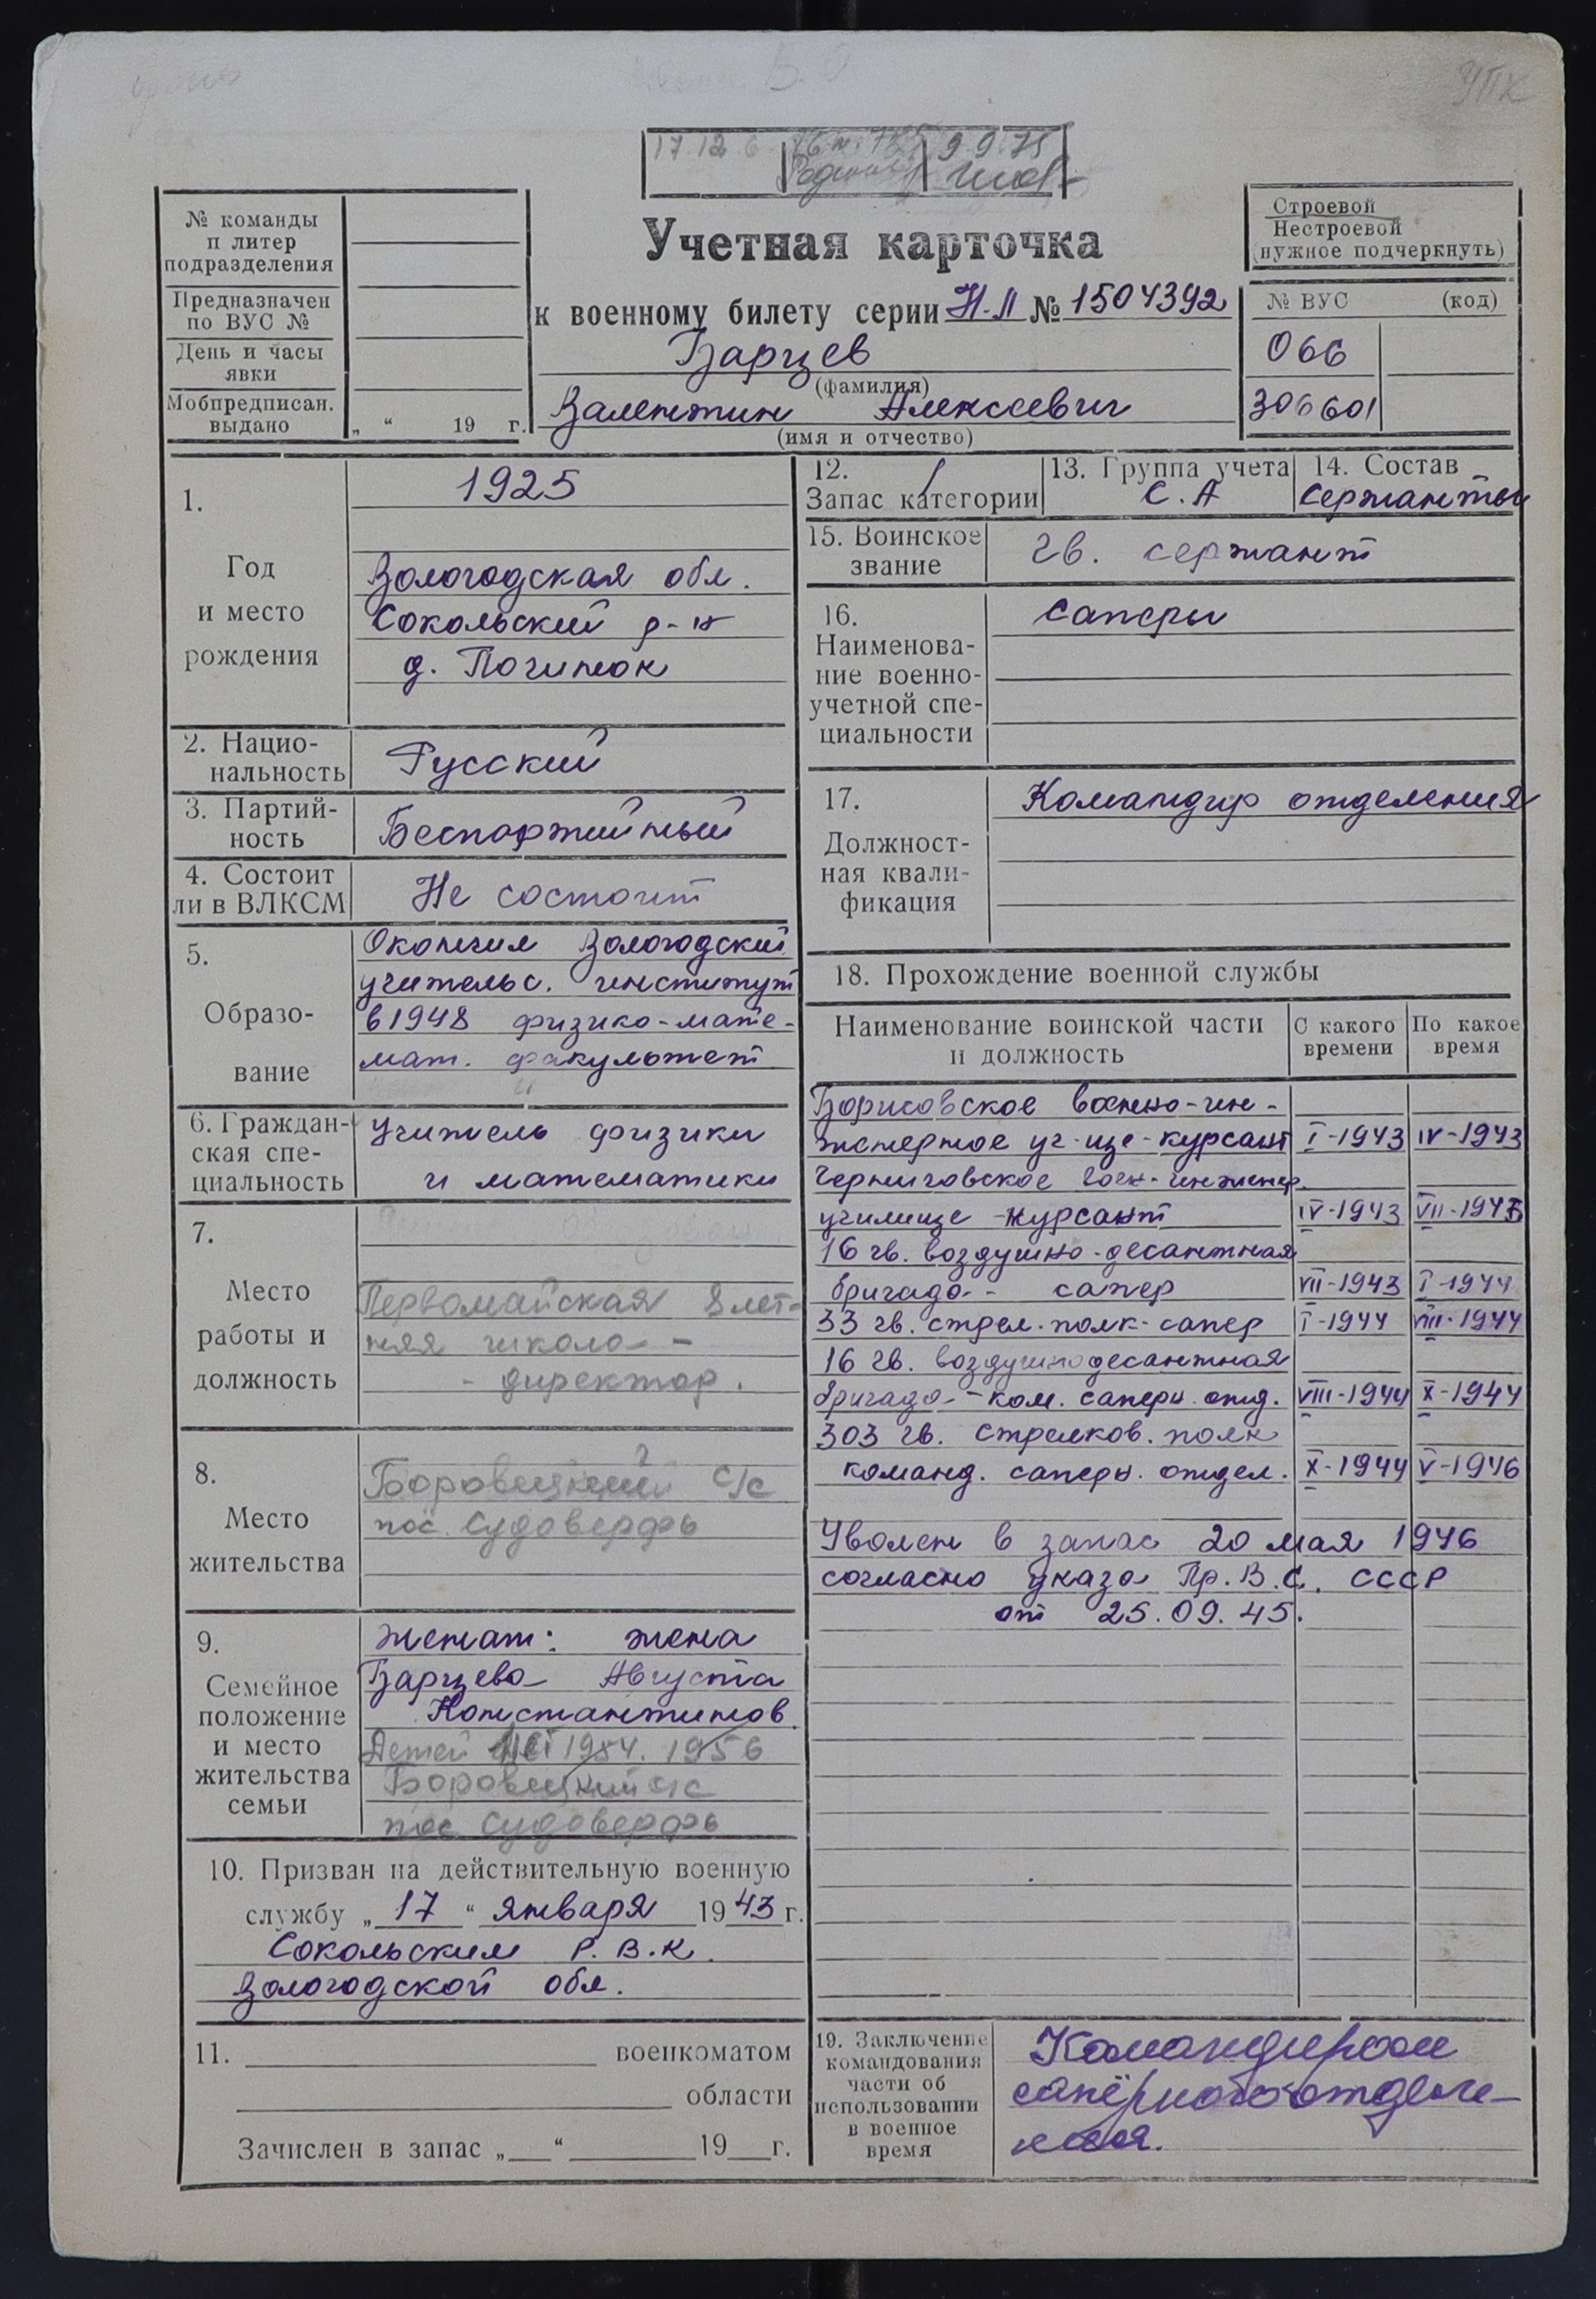 УПК
17.12.6
9 9 75
Учетная карточка
к военному билету серии Н-II № 1504392
Барцев
(фамилия)
Валентин Алексеевич
(имя и отчество)
№ команды
п литер
подразделения
Предназначен
по ВУС №
День и часы
явки
Мобпредписан.
выдано
„ “ 19 г.
Строевой
Нестроевой
(нужное подчеркнуть)
№ ВУС (код)
066
306601
1. 1925
Год
и место
рождения
Вологодская обл.
Сокольский р-н
д. Починок
2. Нацио-
нальность
Русский
3. Партий-
ность
Беспартийный
4. Состоит
ли в ВЛКСМ
Не состоит
5.
Образо-
вание
Окончил Вологодский
учительс. институт
в 1948 физико-мате-
мат. факультет
6. Граждан-
ская спе-
циальность
Учитель физики
и математики
7.
Место
работы и
должность
Первомайская 8 лет-
няя школа -
- директор.
8.
Место
жительства
Боровецкий с/с
пос. Судоверфь
9.
Семейное
положение
и место
жительства
семьи
Женат: жена
Барцева Августа
Константинов.
Детей 1954. 1956
Боровецкий с/с
пос Судоверфь
10. Призван на действительную военную
службу „ 17 “ января 19 43 г.
Сокольским Р.В.К.
Вологодской обл.
11. военкоматом
области
Зачислен в запас „ “ 19 г.
12. 1
Запас категории
13. Группа учета
С.А
14. Состав
Сержанты
15. Воинское
звание
Гв. сержант
16.
Наименова-
ние военно-
учетной спе-
циальности
Саперы
17.
Должност-
ная квали-
фикация
Командир отделения
18. Прохождение военной службы
Наименование воинской части
и должность
С какого
времени
По какое
время
Борисовское военно-ин-
женерное уч-ще-курсант I-1943 IV-1943
Черниговское воен-инженер.
училище -курсант IV-1943 VII-1943
16 гв. воздушно-десантная
бригада - сапер VII-1943 I-1944
33 гв. стрел. полк-сапер I-1944 VIII-1944
16 гв. воздушнодесантная
бригада - ком. саперн. отд. VIII-1944 X-1944
303 гв. Стрелков. полк
команд. саперн. отдел. X-1944 V-1946
Уволен в запас 20 мая 1946
согласно указа Пр.В.С. СССР
от 25.09.45.
19. Заключение
командования
части об
использовании
в военное
время
Командиром
сапёрного отделе-
ния.